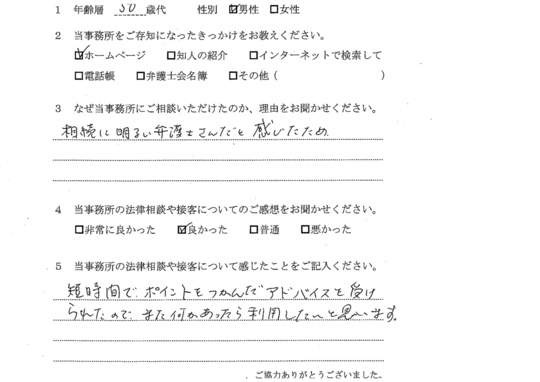 1 年齢層 50 歳代 性別 ☑男性 □女性
2 当事務所をご存知になったきっかけをお教えください。
☑ホームページ □知人の紹介 □インターネットで検索して
□電話帳 □弁護士会名簿 □その他 ( )
3 なぜ当事務所にご相談いただけたのか、理由をお聞かせください。
相続に明るい弁護士さんだと感じたため
4 当事務所の法律相談や接客についてのご感想をお聞かせください。
□非常に良かった ☑良かった □普通 □悪かった
5 当事務所の法律相談や接客について感じたことをご記入ください。
短時間で、ポイントをつかんだアドバイスを受け
られたので、また何かあったら利用したいと思います。
ご協力ありがとうございました。